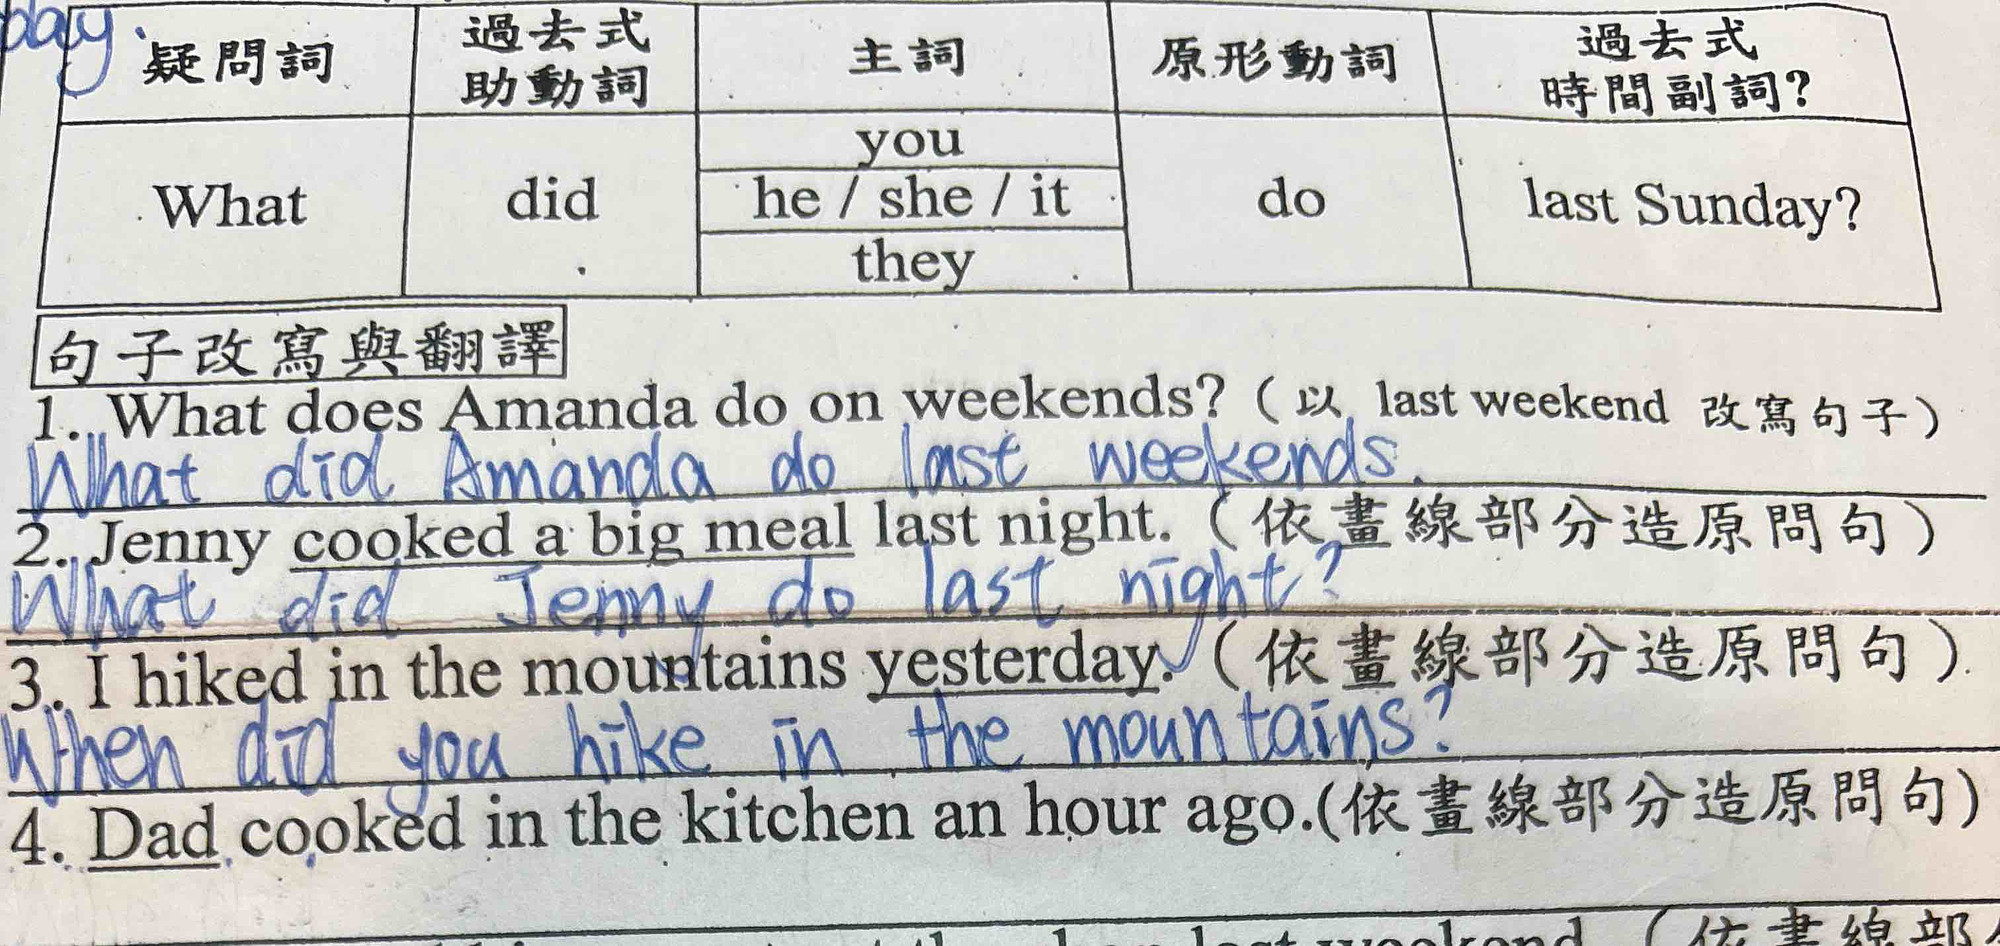 day.
疑問詞 過去式助動詞 主詞 原形動詞 過去式時間副詞?
What did you do last Sunday?
he / she / it
they
句子改寫與翻譯
1. What does Amanda do on weekends? ( 以 last weekend 改寫句子 )
What did Amanda do last weekends.
2. Jenny cooked a big meal last night. ( 依畫線部分造原問句 )
What did Jenny do last night?
3. I hiked in the mountains yesterday. ( 依畫線部分造原問句 )
When did you hike in the mountains?
4. Dad cooked in the kitchen an hour ago.(依畫線部分造原問句)
last weekend ( 依畫線部